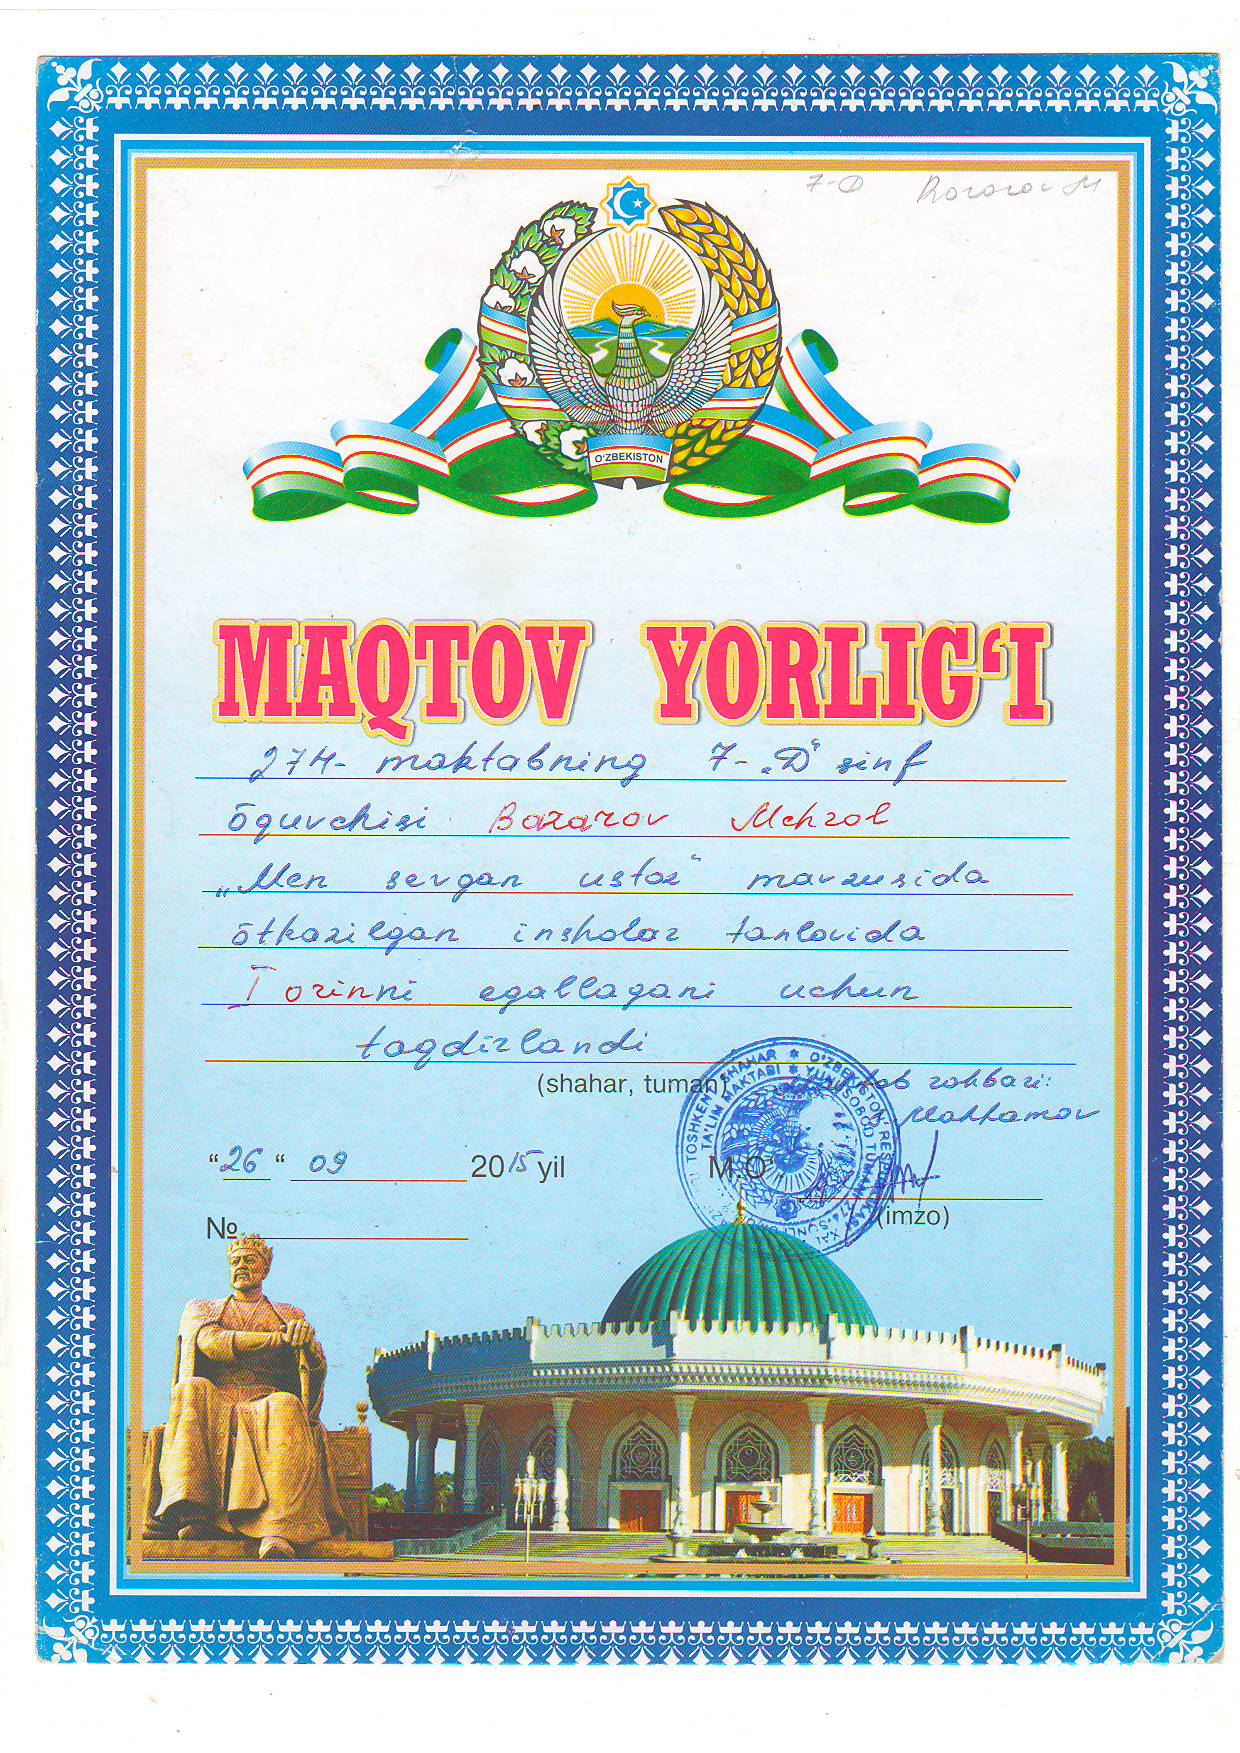 7-D Bozorov M
O'ZBEKISTON
MAQTOV YORLIG‘I
274- maktabning 7-„D“ sinf
ōquvchisi Bazarov Mehrol
„Men sevgan ustoz“ mavzusida
ōtkazilgan insholar tanlovida
I orinni egallagani uchun
taqdirlandi
(shahar, tuman)
Maktab rahbari:
Mahkamov
“26“ 09 2015 yil M.O‘.
(imzo)
№
TOSHKENT SHAHAR * O'ZBEKISTON RESPUBLIKASI
TA'LIM MAKTABI * YUNUSOBOD TUMANI 274-SONLI